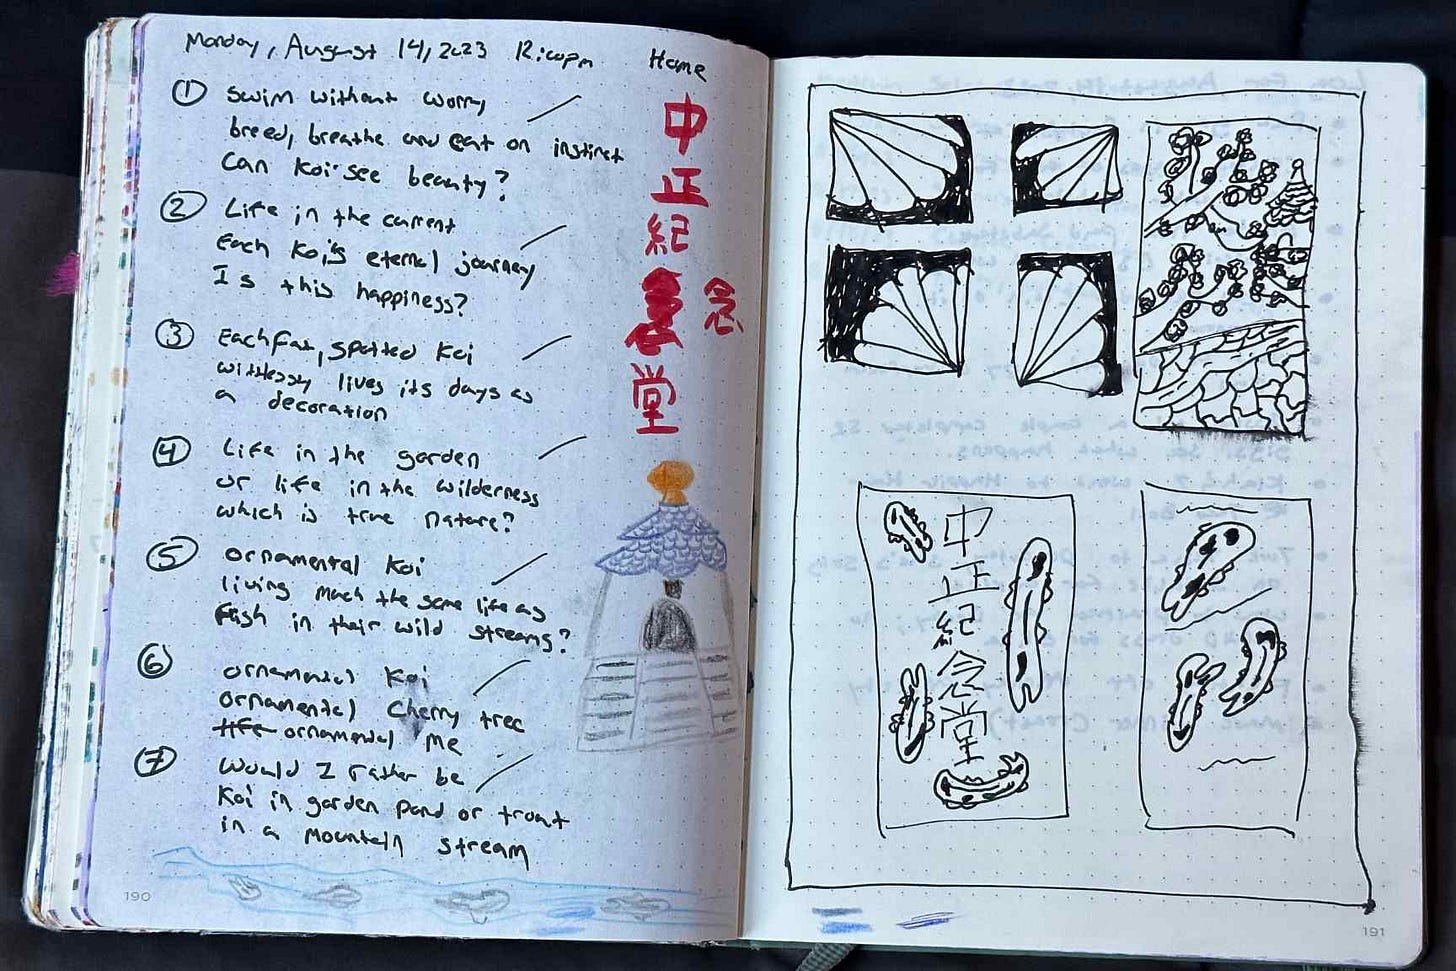 Monday, August 14, 2023 12:00pm Home
① Swim without worry
breed, breathe and eat on instinct
Can Koi see beauty?
② Life in the current
Each Koi's eternal journey
Is this happiness?
③ Each fat, spotted Koi
witlessly lives its days as
a decoration
④ Life in the garden
or life in the wilderness
which is true nature?
⑤ ornamental Koi
living much the same life as
fish in their wild streams?
⑥ ornamental Koi
ornamental Cherry tree
life ornamental me
⑦ Would I rather be
Koi in garden pond or trout
in a mountain stream
中
正
紀
念
堂
190
中
正
紀
念
堂
191